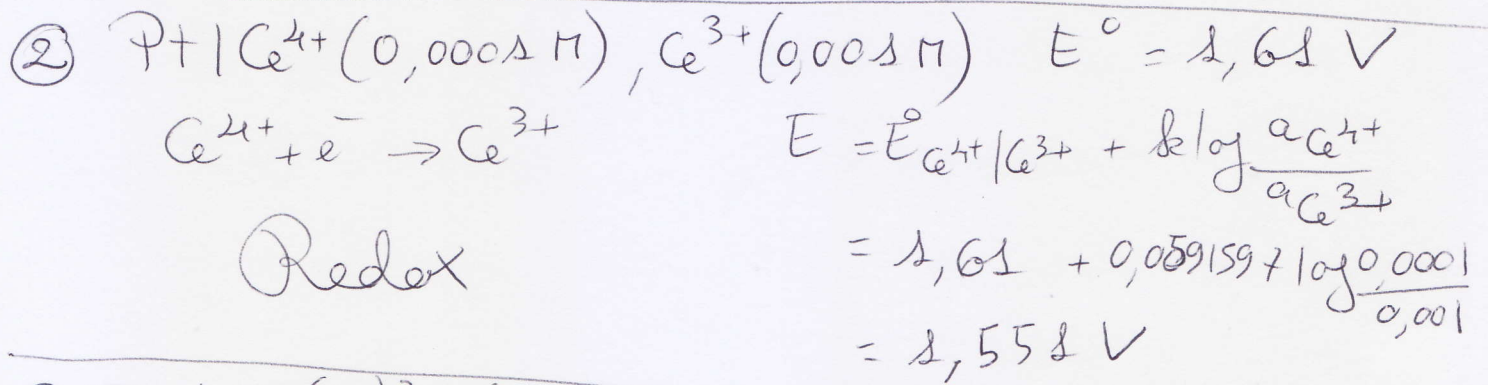 ② Pt | Ce⁴⁺ (0,0001 M), Ce³⁺ (0,001 M) E° = 1,61 V
Ce⁴⁺ + e⁻ → Ce³⁺ E = E°Ce⁴⁺/Ce³⁺ + k log aCe⁴⁺/aCe³⁺
Redox = 1,61 + 0,059159 * log 0,0001/0,001
= 1,551 V